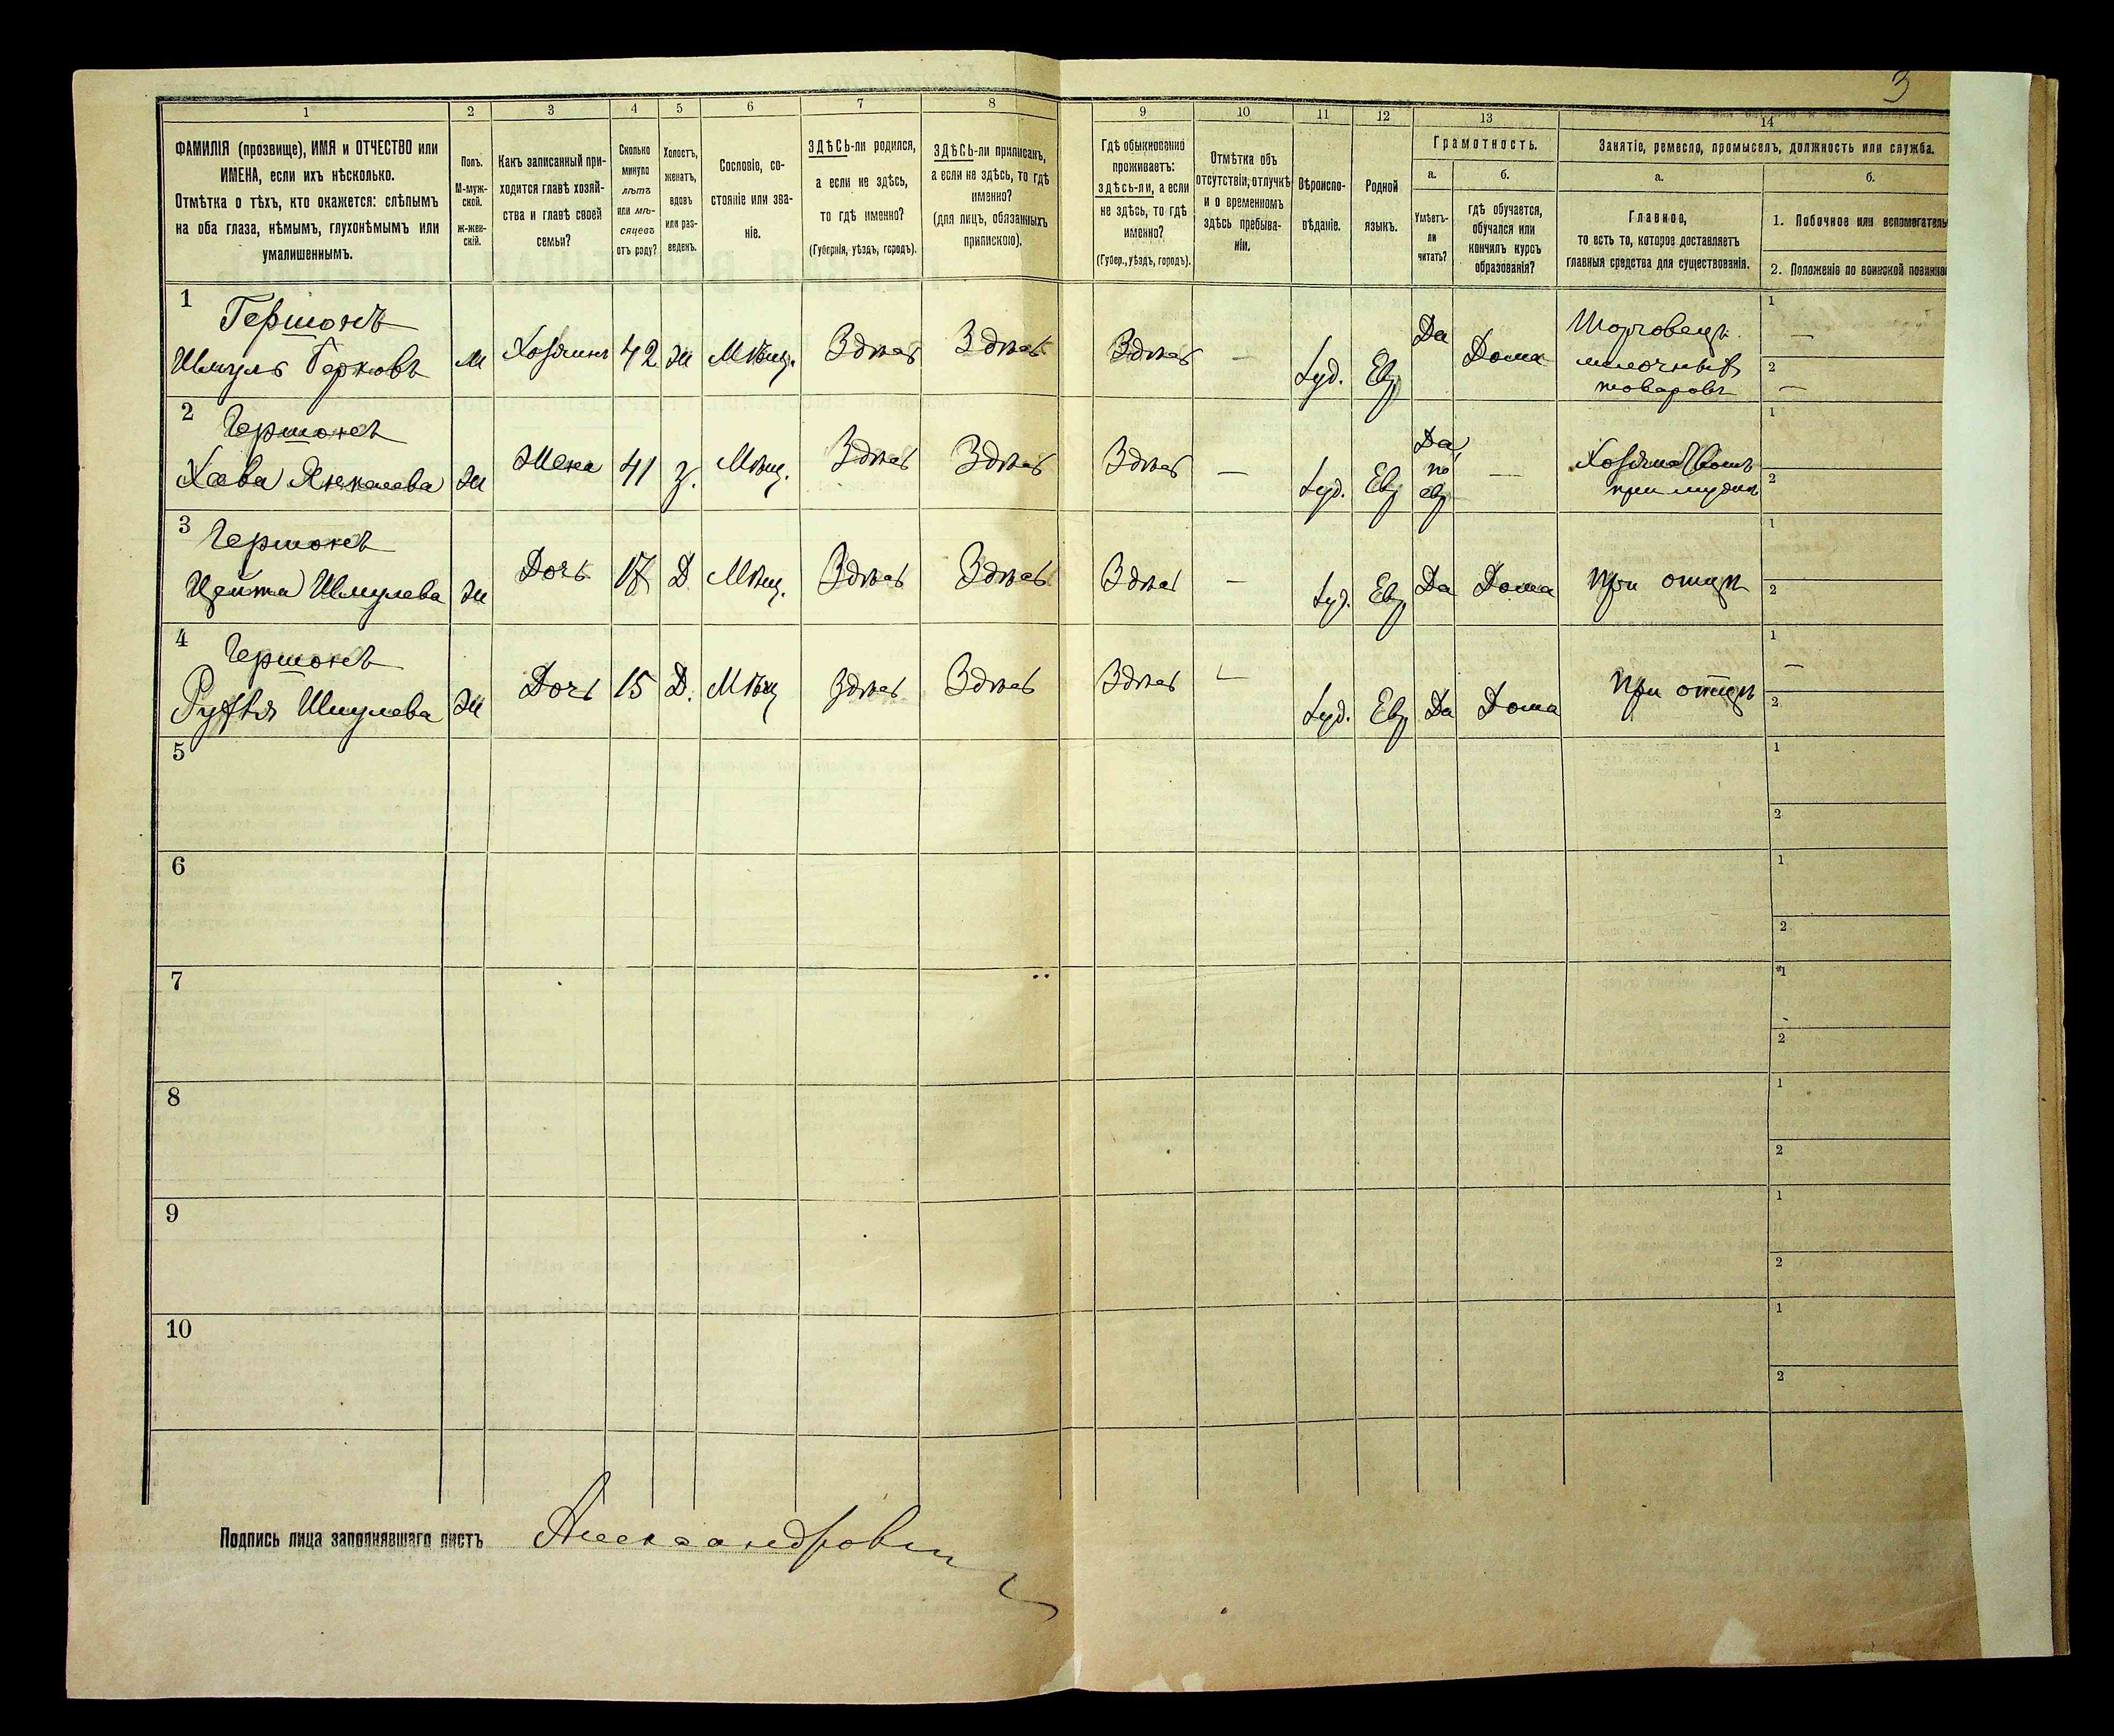 3
1 2 3 4 5 6 7 8 9 10 11 12 13 14
ФАМИЛІЯ (прозвище), ИМЯ и ОТЧЕСТВО или
ИМЕНА, если ихъ нѣсколько.
Отмѣтка о тѣхъ, кто окажется: слѣпымъ
на оба глаза, нѣмымъ, глухонѣмымъ или
умалишеннымъ.
Полъ.
М-муж-
ской.
ж-жен-
скій.
Какъ записанный при-
ходится главѣ хозяй-
ства и главѣ своей
семьи?
Сколько
минуло
лѣтъ
или мѣ-
сяцевъ
отъ роду?
Холостъ,
женатъ,
вдовъ
или раз-
веденъ.
Сословіе, со-
стояніе или зва-
ніе.
ЗДѢСЬ-ли родился,
а если не здѣсь,
то гдѣ именно?
(Губернія, уѣздъ, городъ).
ЗДѢСЬ-ли приписанъ,
а если не здѣсь, то гдѣ
именно?
(для лицъ, обязанныхъ
припискою).
Гдѣ обыкновенно
проживаетъ:
здѣсь-ли, а если
не здѣсь, то гдѣ
именно?
(Губер., уѣздъ, городъ).
Отмѣтка объ
отсутствіи, отлучкѣ
и о временномъ
здѣсь пребыва-
ніи.
Вѣроиспо-
вѣданіе.
Родной
языкъ.
Грамотность.
а.
Умѣетъ-
ли
читать?
б.
гдѣ обучается,
обучался или
кончилъ курсъ
образованія?
Занятіе, ремесло, промыселъ, должность или служба.
а.
Главное,
то есть то, которое доставляетъ
главныя средства для существованія.
б.
1. Побочное или
2. Положеніе по воинской
1
Гершонъ
Шмуль Берковъ
м Хозяинъ 42 ж Мѣщ. Здѣсь Здѣсь Здѣсь — Іуд. Евр Да Дома
Торговецъ
мелочныхъ
товаровъ
1 —
2 —
2
Гершонъ
Хава Янкелева
ж Жена 41 з. Мѣщ. Здѣсь Здѣсь Здѣсь — Іуд. Евр
Да,
по
евр
—
при мужѣ
1
2
3
Гершонъ
Шмулева
ж Дочь 17 Д Мѣщ. Здѣсь Здѣсь Здѣсь — Іуд. Евр Да Дома При отцѣ
1
2
4
Гершонъ
Шмулева
ж Дочь 15 Д. Мѣщ Здѣсь Здѣсь Здѣсь — Іуд. Евр Да Дома При отцѣ
1 —
2
5
1
2
6
1
2
7
1
2
8
1
2
9
1
2
10
1
2
Подпись лица заполнявшаго листъ